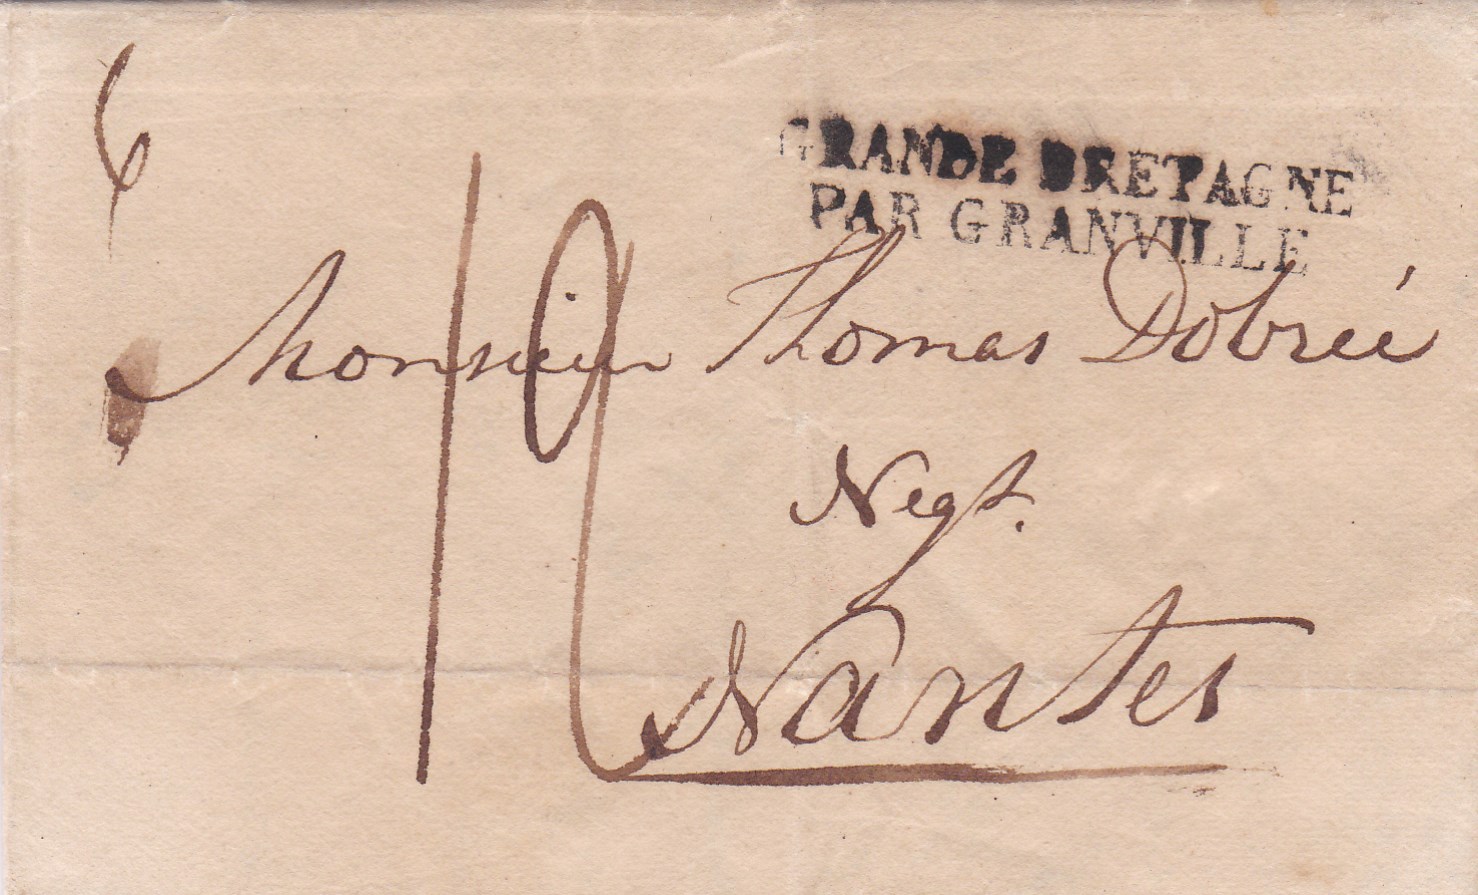 6
GRANDE BRETAGNE
PAR GRANVILLE
Monsieur Thomas Dobrée
Negt.
Nantes